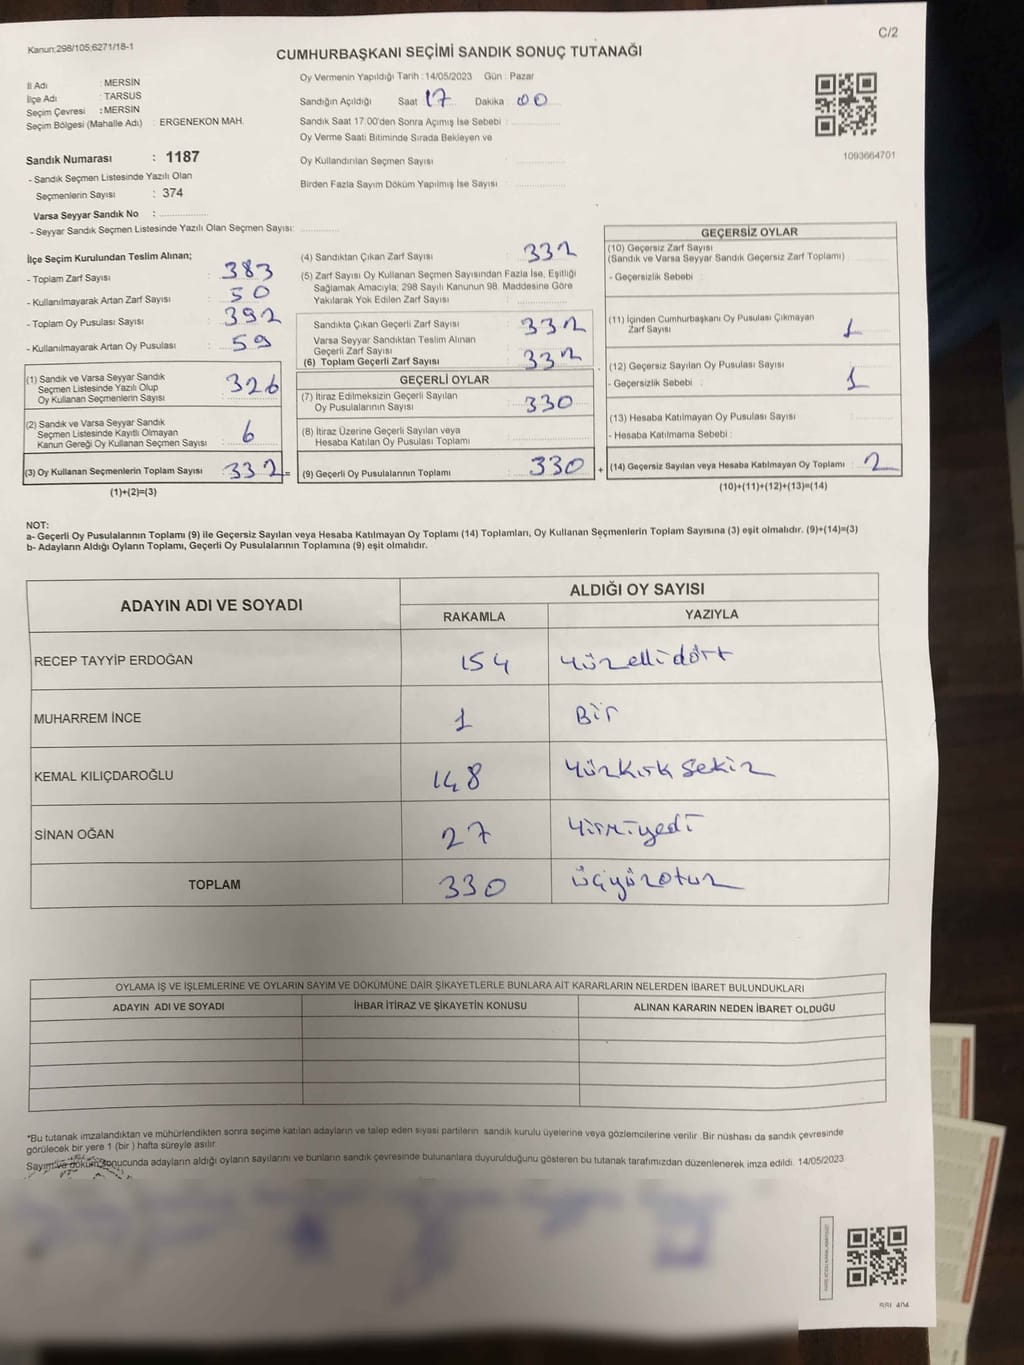 Kanun;298/105;6271/18-1
C/2
CUMHURBAŞKANI SEÇİMİ SANDIK SONUÇ TUTANAĞI
İl Adı : MERSİN
İlçe Adı : TARSUS
Seçim Çevresi : MERSİN
Seçim Bölgesi (Mahalle Adı) : ERGENEKON MAH.
Sandık Numarası : 1187
- Sandık Seçmen Listesinde Yazılı Olan
Seçmenlerin Sayısı : 374
Varsa Seyyar Sandık No :
- Seyyar Sandık Seçmen Listesinde Yazılı Olan Seçmen Sayısı:
Oy Vermenin Yapıldığı Tarih : 14/05/2023 Gün : Pazar
Sandığın Açıldığı Saat 17 Dakika : 00
Sandık Saat 17:00'den Sonra Açımış İse Sebebi :
Oy Verme Saati Bitiminde Sırada Bekleyen ve
Oy Kullandırılan Seçmen Sayısı :
Birden Fazla Sayım Döküm Yapılmış İse Sayısı :
1093664701
İlçe Seçim Kurulundan Teslim Alınan;
- Toplam Zarf Sayısı : 383
- Kullanılmayarak Artan Zarf Sayısı : 50
- Toplam Oy Pusulası Sayısı : 392
- Kullanılmayarak Artan Oy Pusulası : 59
(1) Sandık ve Varsa Seyyar Sandık
Seçmen Listesinde Yazılı Olup
Oy Kullanan Seçmenlerin Sayısı : 326
(2) Sandık ve Varsa Seyyar Sandık
Seçmen Listesinde Kayıtlı Olmayan
Kanun Gereği Oy Kullanan Seçmen Sayısı : 6
(3) Oy Kullanan Seçmenlerin Toplam Sayısı : 332 =
(1)+(2)=(3)
(4) Sandıktan Çıkan Zarf Sayısı : 332
(5) Zarf Sayısı Oy Kullanan Seçmen Sayısından Fazla İse, Eşitliği
Sağlamak Amacıyla; 298 Sayılı Kanunun 98. Maddesine Göre
Yakılarak Yok Edilen Zarf Sayısı :
Sandıkta Çıkan Geçerli Zarf Sayısı : 332
Varsa Seyyar Sandıktan Teslim Alınan
Geçerli Zarf Sayısı :
(6) Toplam Geçerli Zarf Sayısı : 332
GEÇERLİ OYLAR
(7) İtiraz Edilmeksizin Geçerli Sayılan
Oy Pusulalarının Sayısı : 330
(8) İtiraz Üzerine Geçerli Sayılan veya
Hesaba Katılan Oy Pusulası Toplamı :
(9) Geçerli Oy Pusulalarının Toplamı : 330 +
GEÇERSİZ OYLAR
(10) Geçersiz Zarf Sayısı
(Sandık ve Varsa Seyyar Sandık Geçersiz Zarf Toplamı)
- Geçersizlik Sebebi :
(11) İçinden Cumhurbaşkanı Oy Pusulası Çıkmayan
Zarf Sayısı : 1
(12) Geçersiz Sayılan Oy Pusulası Sayısı : 1
- Geçersizlik Sebebi :
(13) Hesaba Katılmayan Oy Pusulası Sayısı :
- Hesaba Katılmama Sebebi :
(14) Geçersiz Sayılan veya Hesaba Katılmayan Oy Toplamı : 2
(10)+(11)+(12)+(13)=(14)
NOT:
a- Geçerli Oy Pusulalarının Toplamı (9) ile Geçersiz Sayılan veya Hesaba Katılmayan Oy Toplamı (14) Toplamları, Oy Kullanan Seçmenlerin Toplam Sayısına (3) eşit olmalıdır. (9)+(14)=(3)
b- Adayların Aldığı Oyların Toplamı, Geçerli Oy Pusulalarının Toplamına (9) eşit olmalıdır.
ADAYIN ADI VE SOYADI
ALDIĞI OY SAYISI
RAKAMLA YAZIYLA
RECEP TAYYİP ERDOĞAN 154 Yüzellidört
MUHARREM İNCE 1 Bir
KEMAL KILIÇDAROĞLU 148 Yüzkırk sekiz
SİNAN OĞAN 27 Yirmiyedi
TOPLAM 330 üçyüzotuz
OYLAMA İŞ VE İŞLEMLERİNE VE OYLARIN SAYIM VE DÖKÜMÜNE DAİR ŞİKAYETLERLE BUNLARA AİT KARARLARIN NELERDEN İBARET BULUNDUKLARI
ADAYIN ADI VE SOYADI İHBAR İTİRAZ VE ŞİKAYETİN KONUSU ALINAN KARARIN NEDEN İBARET OLDUĞU
*Bu tutanak imzalandıktan ve mühürlendikten sonra seçime katılan adayların ve talep eden siyasi partilerin sandık kurulu üyelerine veya gözlemcilerine verilir. Bir nüshası da sandık çevresinde
görülecek bir yere 1 (bir ) hafta süreyle asılır.
Sayım ve döküm sonucunda adayların aldığı oyların sayılarını ve bunların sandık çevresinde bulunanlara duyurulduğunu gösteren bu tutanak tarafımızdan düzenlenerek imza edildi. 14/05/2023